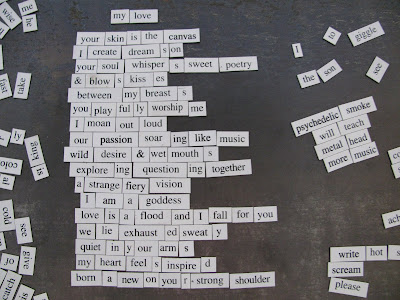 my love
your skin is the canvas
I create dream s on
your soul whisper s sweet poetry
& blow s kiss es
between my breast s
you play ful ly worship me
I moan out loud
our passion soar ing like music
wild desire & wet mouth s
explore ing question ing together
a strange fiery vision
I am a goddess
love is a flood and I fall for you
we lie exhaust ed sweat y
quiet in y our arm s
my heart feel s inspire d
born a new on you r - strong shoulder
I to giggle
the son see
psychedelic smoke
will teach
metal head
more music
write hot s
scream
please
me
he
take
by
is
king
cold
see
of
give